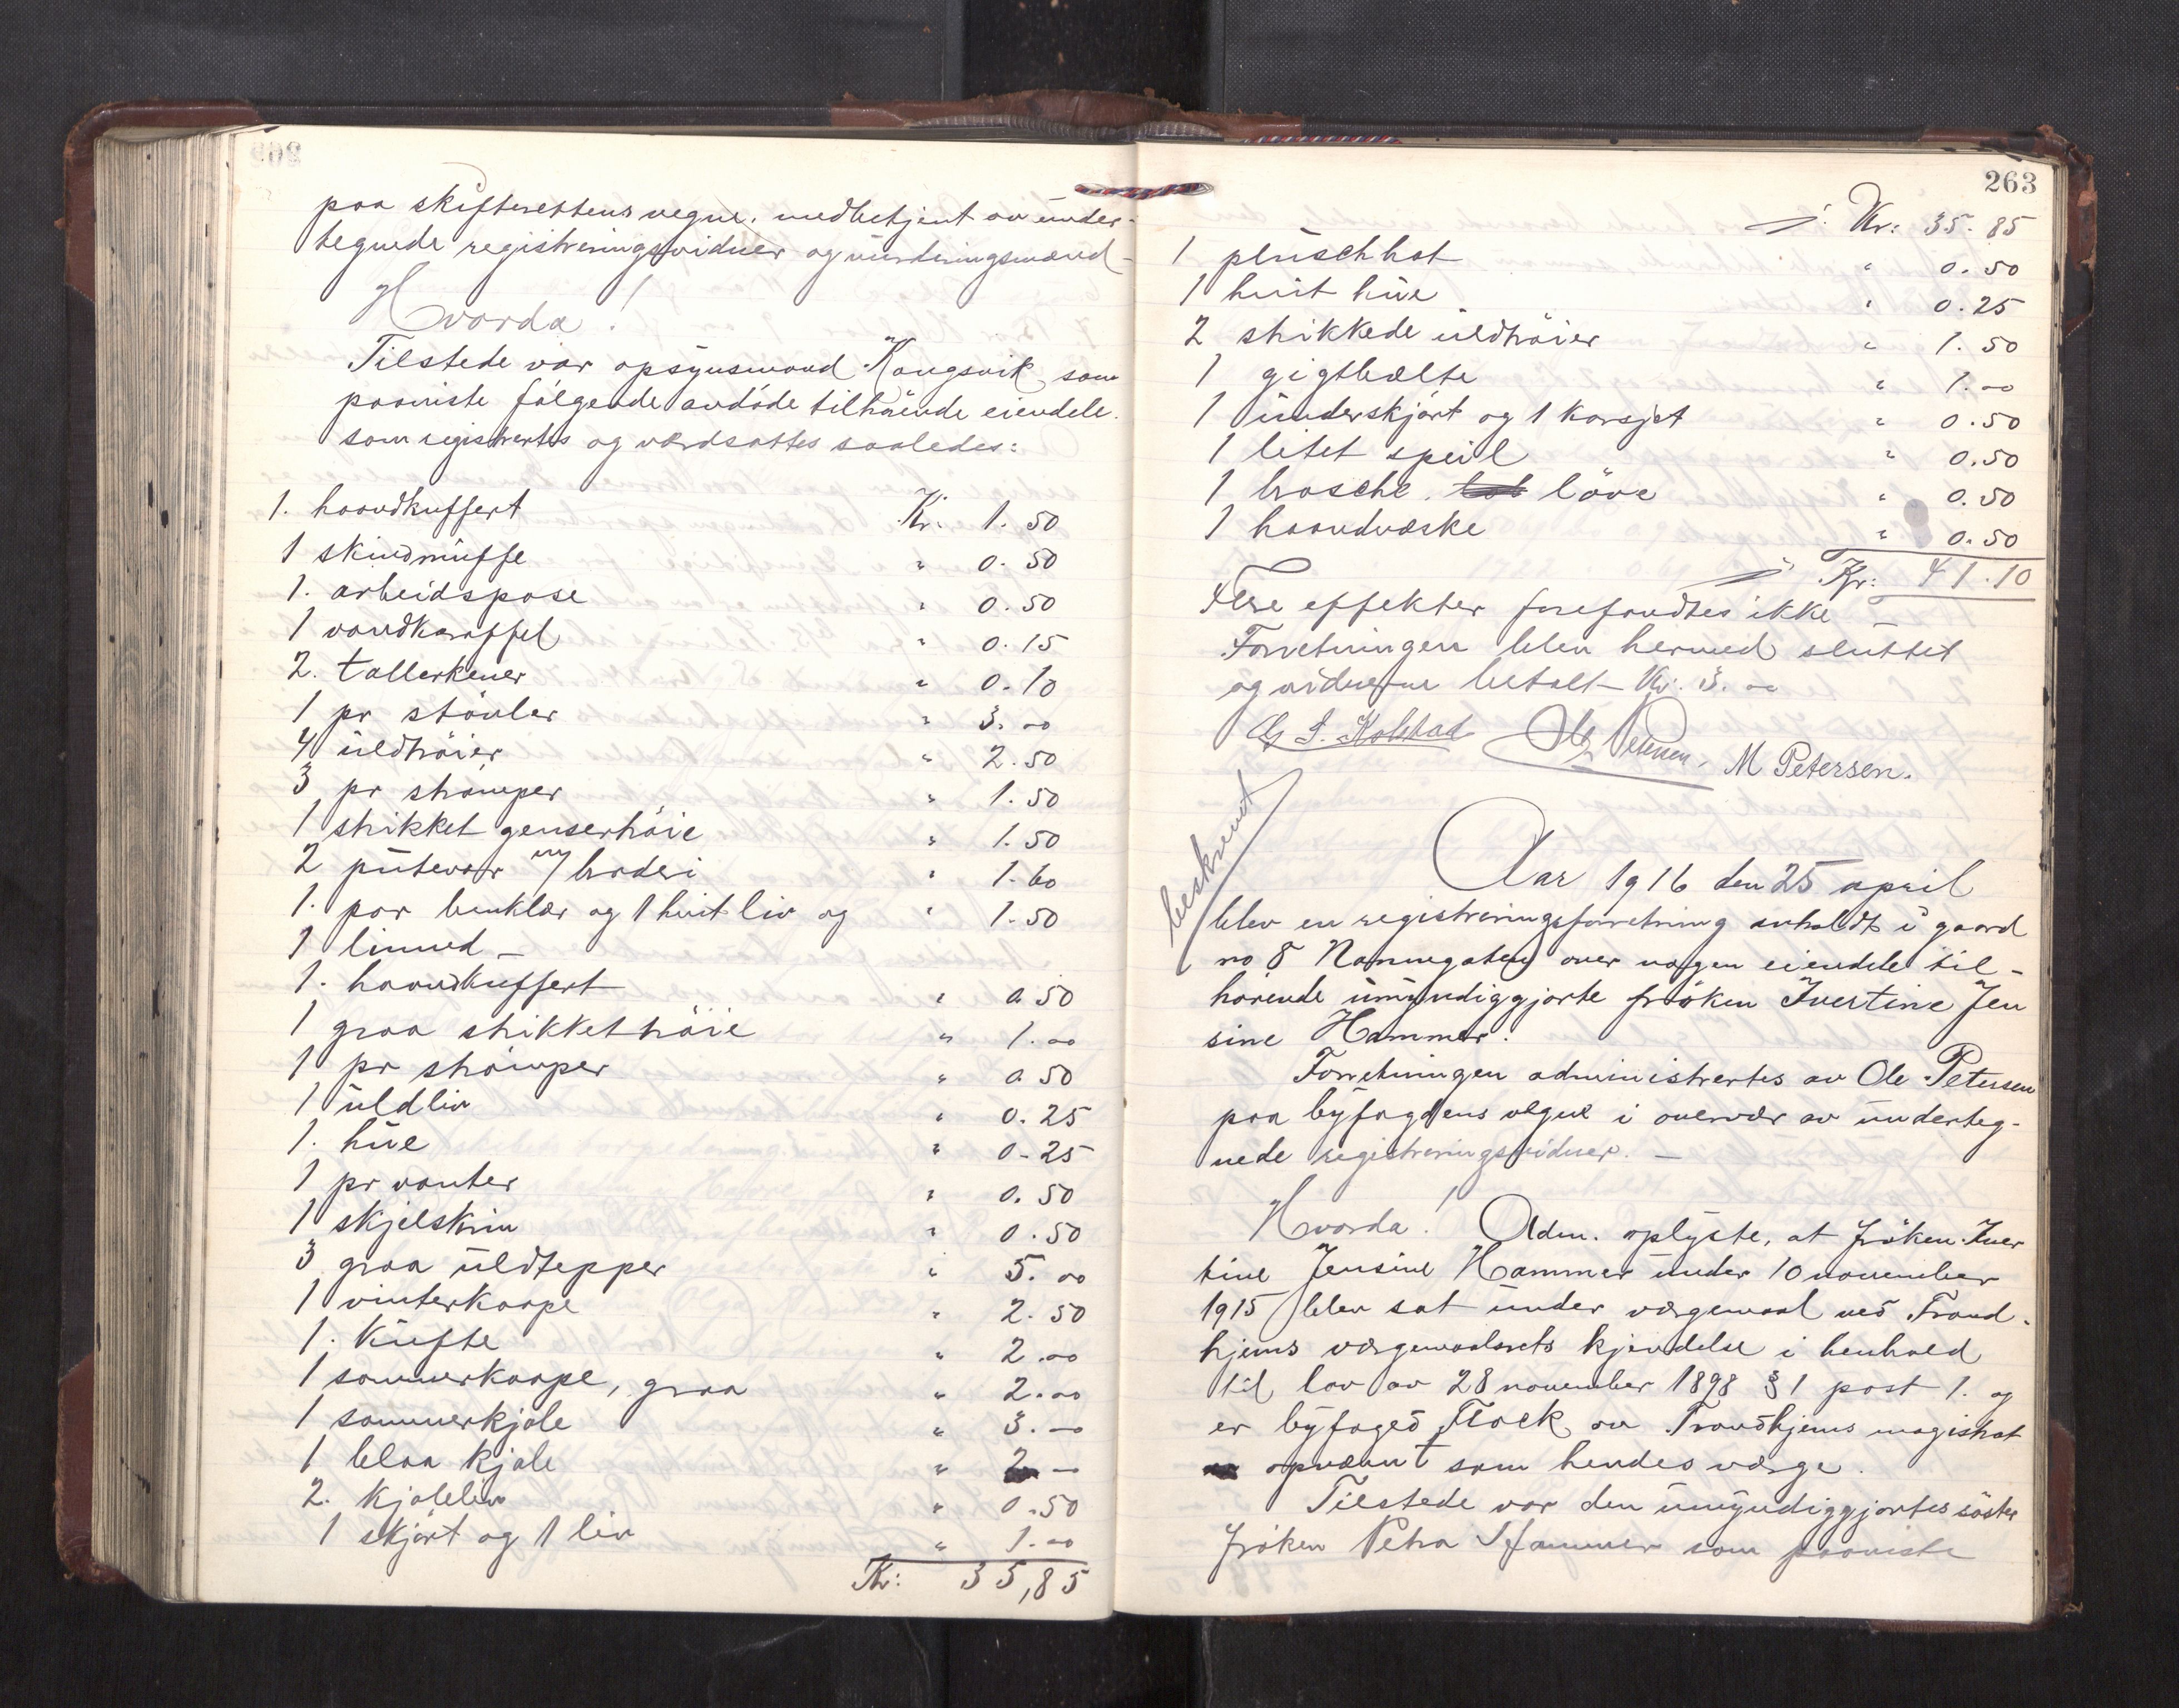 paa skifterettens vegne, medbetjent av under-
tegnede registreringsvidner og vurderingsmænd-
Hvorda!
Tilstede var opsynsmand Kongsvik som
paaviste følgende avdøde tilhørende eiendele.
som registrertes og værdsattes saaledes:
1. haandkuffert Kr: 1.50
1 skindmuffe " 0.50
1. arbeidspose " 0.50
1 vandkaraffel " 0.15
2. tallerkener " 0.10
1 pr støvler " 3.00
4 uldtrøier " 2.50
3 pr strømper " 1.50
1 strikket gensertrøie " 1.50
2 putevar m/ broderi " 1.60
1. par benklær og 1 hvit liv og " 1.50
1 linned -
1. haandkuffert " 0.50
1 graa strikket trøie " 1.00
1 pr strømper " 0.50
1 uldliv " 0.25
1. hue " 0.25
1 pr vanter " 0.50
1 skjelskrin " 0.50
3 graa uldtepper " 5.00
1 vinterkaape " 2.50
1. Kufte " 2.00
1 sommerkaape, graa " 2.00
1 sommerkjole " 3.—
1 blaa kjole " 2 —
2. kjoleliv " 0.50
1 skjørt og 1 liv " 1.00
Kr: 35,85
263
Kr: 35.85
1 plüschhat " 0.50
1 hvit hue " 0.25
2 strikkede uldtrøier " 1.50
1 gigtbælte " 1.00
1 underskjørt og 1 korsjet " 0.50
1 litet speil " 0.50
1 brosche, løve " 0.50
1 haandvæske " 0.50
Kr: 41.10
Flere effekter forefandtes ikke
Forretningen blev hermed sluttet
og vidnerne betalt Kr. 3.00
G I. Kolstad Ole Petersen, M Petersen.
beskrevet
Aar 1916 den 25 april
blev en registreringsforretning avholdt i gaard
no 8 Nannagaten over nogen eiendele til-
hørende umyndiggjorte frøken Ivertine Jen
sine Hammer.
Forretningen administrertes av Ole Petersen
paa byfogdens vegne i overvær av underteg-
nede registreringsvidner. -
Hvorda! Adm. oplyste, at frøken Iver
tine Jensine Hammer under 10 november
1915 blev sat under værgemaal ved Trond-
hjems værgemaalsrets kjendelse i henhold
til lov av 28 november 1898 § 1 post 1. og
er byfoged Flock av Trondhjems magistrat
opnævnt som hendes værge.
Tilstede var den umyndiggjortes søster
frøken Petra Hammer som paaviste